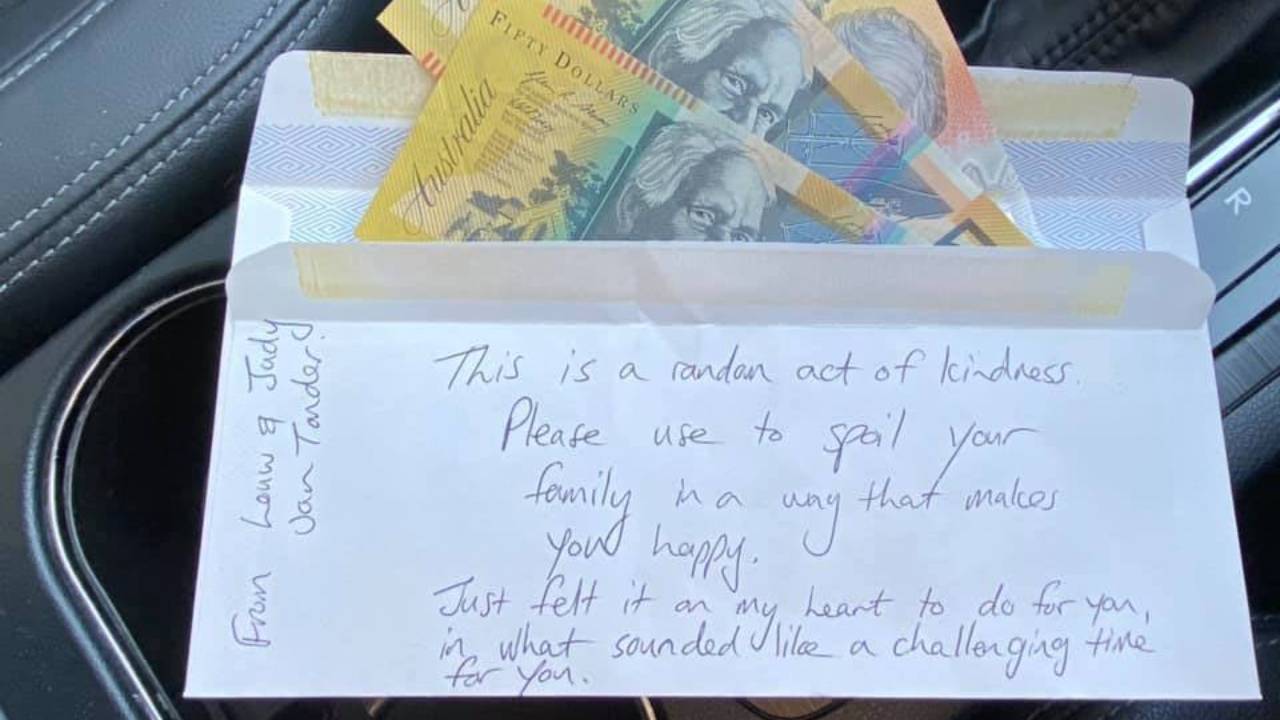 Australia
FIFTY DOLLARS
R
From Louw & Judy
Van Tonder!
This is a random act of kindness.
Please use to spoil your
family in a way that makes
you happy.
Just felt it on my heart to do for you,
in what sounded like a challenging time
for you.